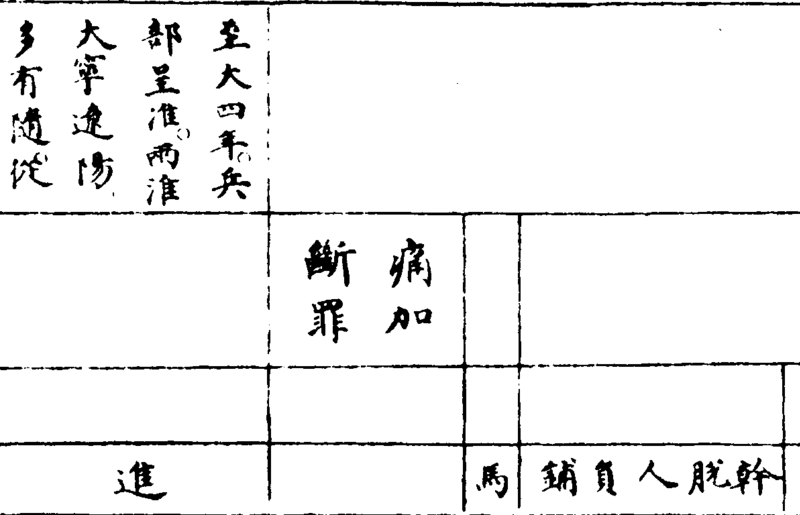 至大四年兵
部呈准兩淮
大寧遼陽
多有隨從
痛加
斷罪
幹脫人員鋪
馬
進